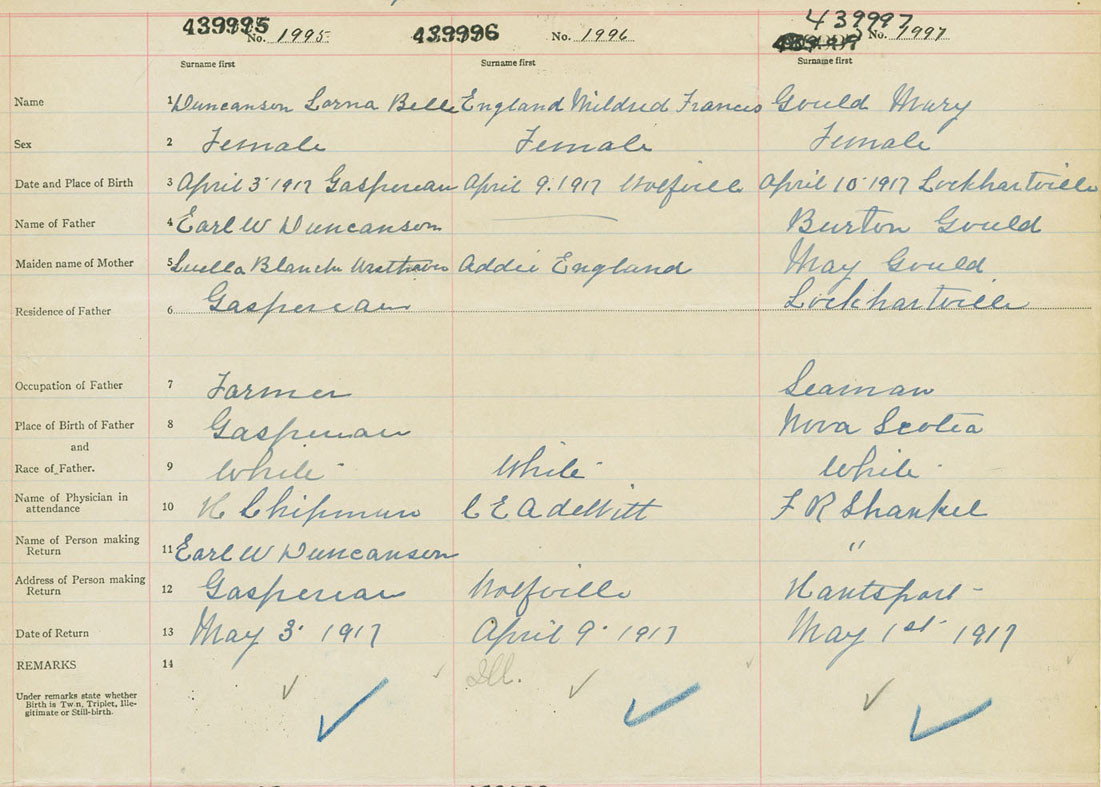 439995 439996 439997
No. 1995 No. 1996 No. 1997
Surname first Surname first Surname first
Name 1 Duncanson Lorna Belle England Mildred Frances Gould Mary
Sex 2 Female Female Female
Date and Place of Birth 3 April 3 1917 Gaspereau April 9. 1917 Wolfville April 10 1917 Lockhartville
Name of Father 4 Earl W Duncanson Burton Gould
Maiden name of Mother 5 Luella Blanche Addie England May Gould
Residence of Father 6 Gaspereau Lockhartville
Occupation of Father 7 Farmer Seaman
Place of Birth of Father 8 Gaspereau Nova Scotia
and
Race of Father. 9 White White White
Name of Physician in
attendance 10 H Chipman C E A deWitt F R Shankel
Name of Person making
Return 11 Earl W Duncanson "
Address of Person making
Return 12 Gaspereau Wolfville Hantsport -
Date of Return 13 May 3. 1917 April 9. 1917 May 1st 1917
REMARKS 14 Ill.
Under remarks state whether
Birth is Twin, Triplet, Ille-
gitimate or Still-birth.